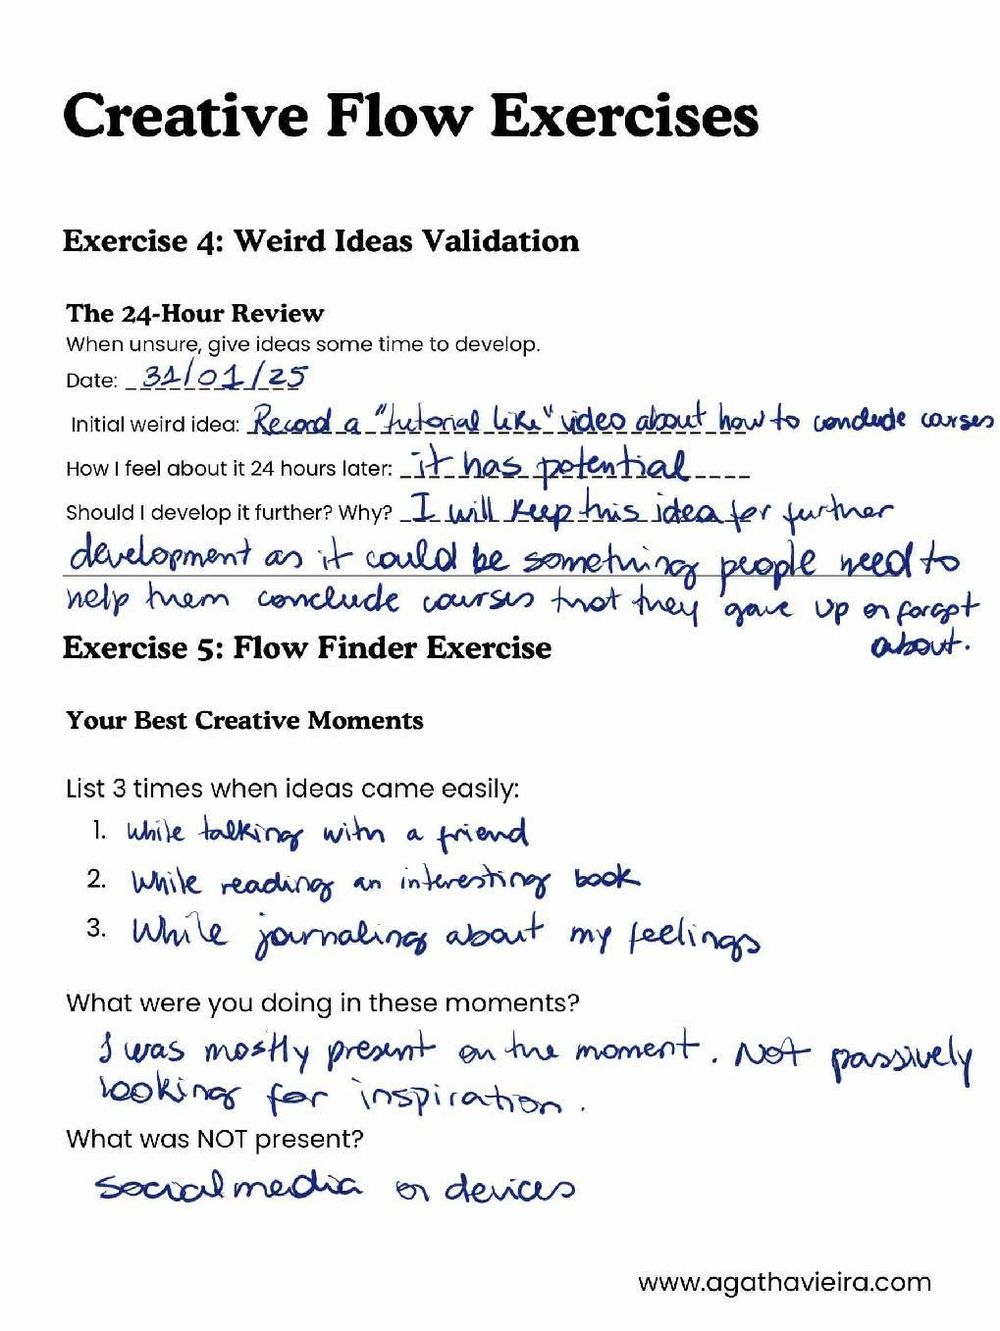 Creative Flow Exercises
Exercise 4: Weird Ideas Validation
The 24-Hour Review
When unsure, give ideas some time to develop.
Date: 31/01/25
Initial weird idea: Record a "tutorial like" video about how to conclude courses
How I feel about it 24 hours later: it has potential
Should I develop it further? Why? I will keep this idea for further
development as it could be something people need to
help them conclude courses that they gave up or forgot
about.
Exercise 5: Flow Finder Exercise
Your Best Creative Moments
List 3 times when ideas came easily:
1. While talking with a friend
2. While reading an interesting book
3. While journaling about my feelings
What were you doing in these moments?
I was mostly present on the moment. Not passively
looking for inspiration.
What was NOT present?
social media or devices
www.agathavieira.com